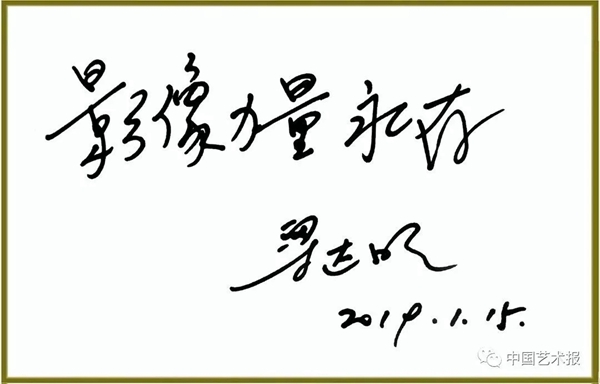 影像力量永存
达明
2019.1.15.
中国艺术报